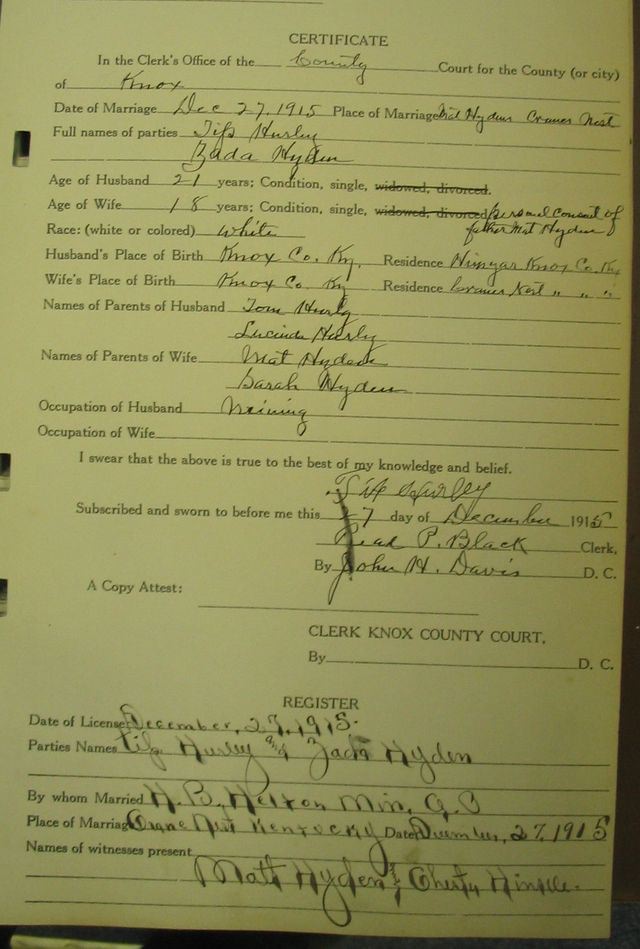 CERTIFICATE
In the Clerk's Office of the County Court for the County (or city)
of Knox
Date of Marriage Dec 27, 1915 Place of Marriage Mat Hydens Cranes Nest
Full names of parties Tip Hurley
Zada Hyden
Age of Husband 21 years; Condition, single, widowed, divorced.
Age of Wife 18 years; Condition, single, widowed, divorced personal consent of
Race: (white or colored) White father Mat Hyden
Husband's Place of Birth Knox Co. Ky. Residence Hinyar Knox Co. Ky
Wife's Place of Birth Knox Co. Ky Residence Cranes Nest " " "
Names of Parents of Husband Tom Hurly
Lucinda Hurly
Names of Parents of Wife Mat Hyden
Sarah Hyden
Occupation of Husband Mining
Occupation of Wife
I swear that the above is true to the best of my knowledge and belief.
Tip Hurley
Subscribed and sworn to before me this 27 day of December 1915
Read P. Black Clerk,
By John H. Davis D. C.
A Copy Attest:
CLERK KNOX COUNTY COURT.
By D. C.
REGISTER
Date of License December, 27, 1915.
Parties Names Tip Hurley and Hyden
By whom Married H. B. Helton Min.
Place of Marriage Crane Nest Kentucky Date December, 27, 1915
Names of witnesses present
Matt Hyden & Hinkle.